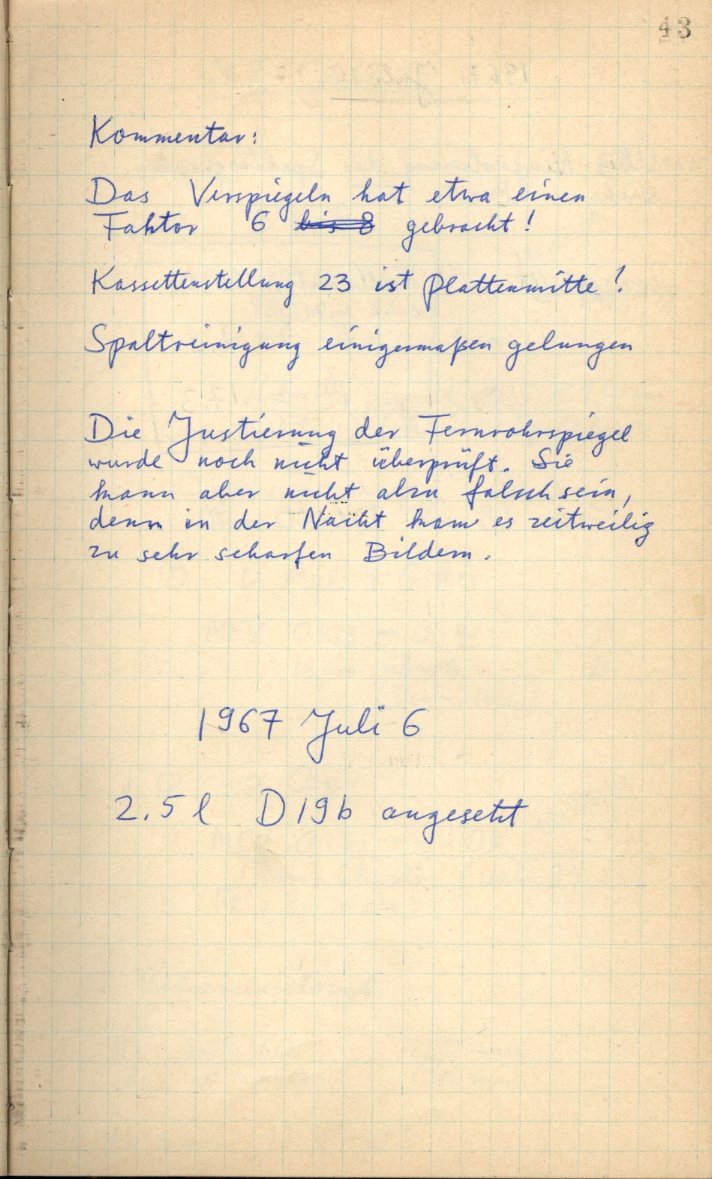 43
Kommentar:
Das Verspiegeln hat etwa einen
Faktor 6 bis 8 gebracht!
Kassettenstellung 23 ist Plattenmitte!
Spaltreinigung einigermaßen gelungen
Die Justierung der Fernrohrspiegel
wurde noch nicht überprüft. Sie
kann aber nicht alzu falsch sein,
denn in der Nacht kam es zeitweilig
zu sehr scharfen Bildern.
1967 Juli 6
2.5 l D19b angesetzt